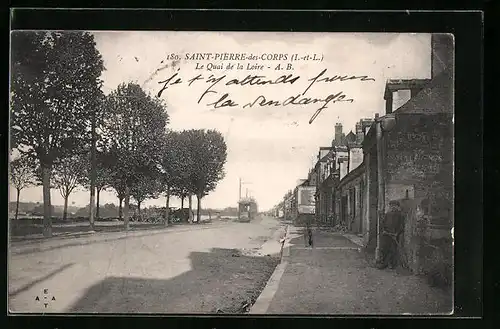 180. SAINT-PIERRE-des-CORPS (I.-et-L.)
Le Quai de la Loire - A. B.
je t'y attends pour
la vendanges
E
A A
T